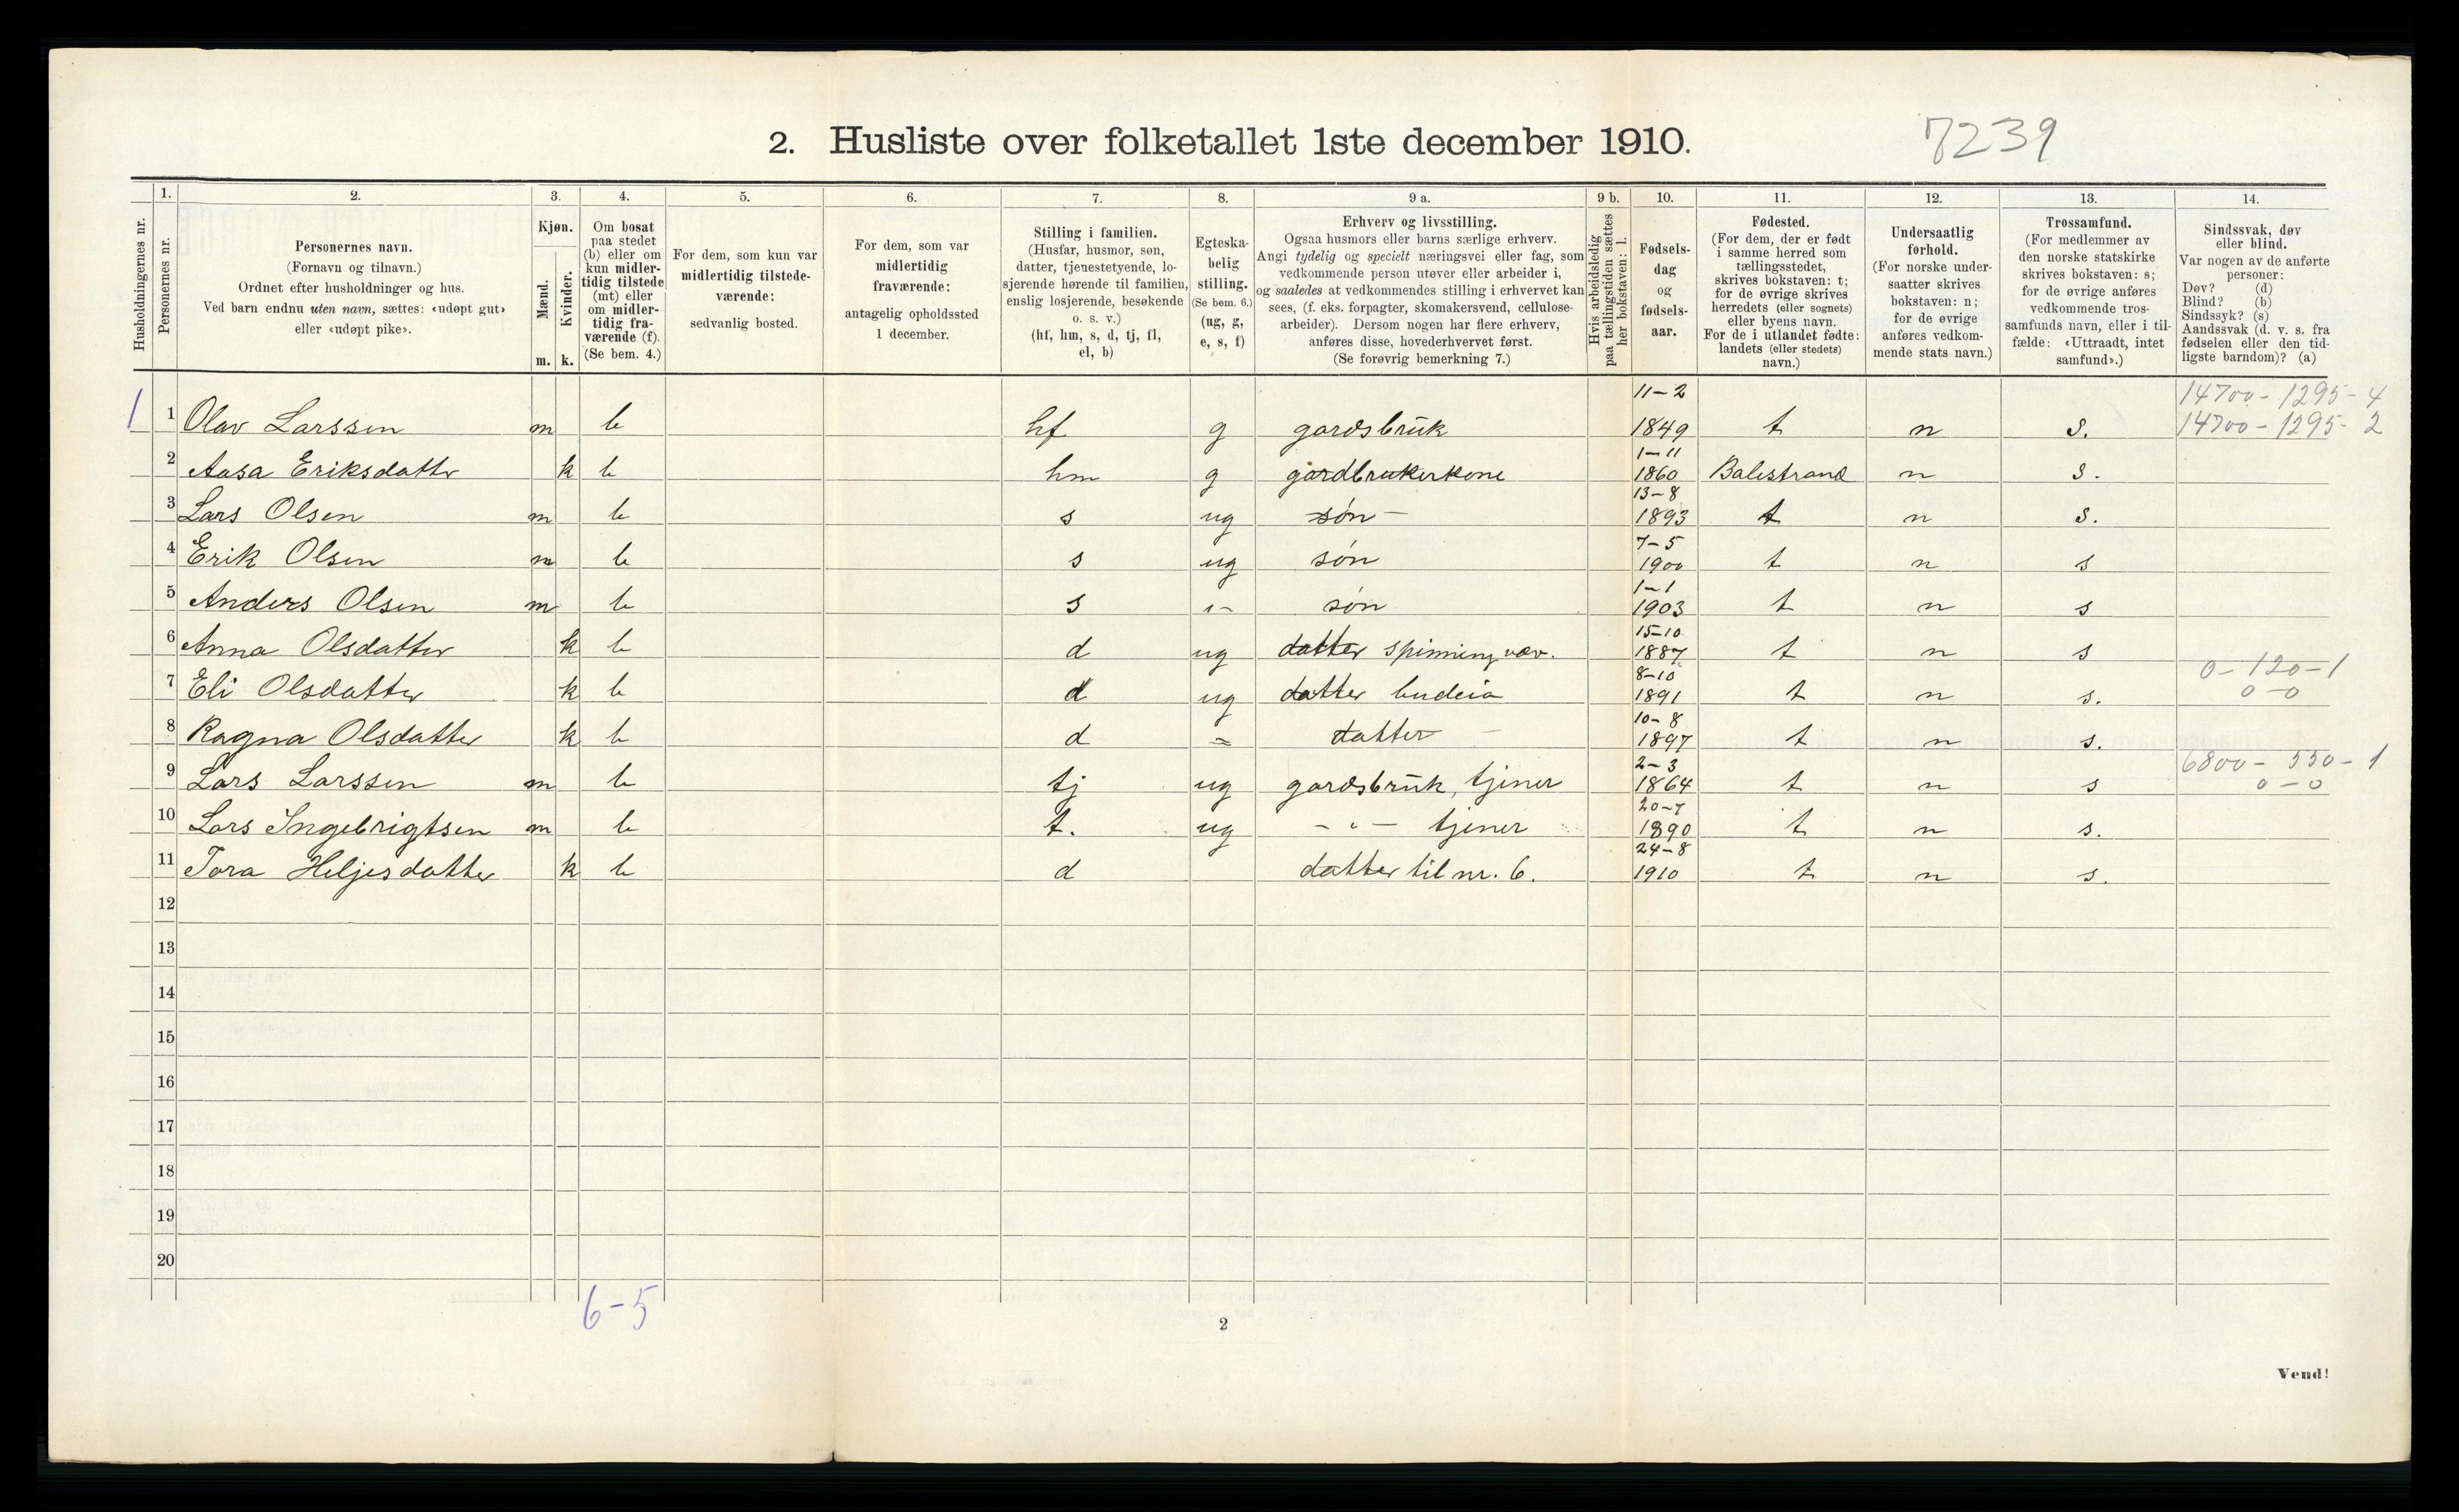 2. Husliste over folketallet 1ste december 1910.
7239
Husholdningernes nr.
1.
Personernes nr.
2.
Personernes navn.
(Fornavn og tilnavn.)
Ordnet efter husholdninger og hus.
Ved barn endnu uten navn, sættes: «udøpt gut»
eller «udøpt pike».
3.
Kjøn.
Mænd.
Kvinder.
m. k.
4.
Om bosat
paa stedet
(b) eller om
kun midler-
tidig tilstede
(mt) eller
om midler-
tidig fra-
værende (f).
(Se bem. 4.)
5.
For dem, som kun var
midlertidig tilstede-
værende:
sedvanlig bosted.
6.
For dem, som var
midlertidig
fraværende:
antagelig opholdssted
1 december.
7.
Stilling i familien.
(Husfar, husmor, søn,
datter, tjenestetyende, lo-
sjerende hørende til familien,
enslig losjerende, besøkende
o. s. v.)
(hf, hm, s, d, tj, fl,
el, b)
8.
Egteska-
belig
stilling.
(Se bem. 6.)
(ug, g,
e, s, f)
9 a.
Erhverv og livsstilling.
Ogsaa husmors eller barns særlige erhverv.
Angi tydelig og specielt næringsvei eller fag, som
vedkommende person utøver eller arbeider i,
og saaledes at vedkommendes stilling i erhvervet kan
sees, (f. eks. forpagter, skomakersvend, cellulose-
arbeider). Dersom nogen har flere erhverv,
anføres disse, hovederhvervet først.
(Se forøvrig bemerkning 7.)
9 b.
Hvis arbeidsledig
paa tællingstiden sættes
her bokstaven: l.
10.
Fødsels-
dag
og
fødsels-
aar.
11.
Fødested.
(For dem, der er født
i samme herred som
tællingsstedet,
skrives bokstaven: t;
for de øvrige skrives
herredets (eller sognets)
eller byens navn.
For de i utlandet fødte:
landets (eller stedets)
navn.)
12.
Undersaatlig
forhold.
(For norske under-
saatter skrives
bokstaven: n;
for de øvrige
anføres vedkom-
mende stats navn.)
13.
Trossamfund.
(For medlemmer av
den norske statskirke
skrives bokstaven: s;
for de øvrige anføres
vedkommende tros-
samfunds navn, eller i til-
fælde: «Uttraadt, intet
samfund».)
14.
Sindssvak, døv
eller blind.
Var nogen av de anførte
personer:
Døv? (d)
Blind? (b)
Sindssyk? (s)
Aandssvak (d. v. s. fra
fødselen eller den tid-
ligste barndom)? (a)
11-2 14700-1295-4
1 1 Olav Larssen m b hf g gardsbruk 1849 t n s. 14700-1295-2
1-11
2 Aasa Eriksdatter k b hm g gardbrukerkone 1860 Balestrand n s.
13-8
3 Lars Olsen m b s ug søn - 1893 t n s.
7-5
4 Erik Olsen m b s ug søn 1900 t n s
1-1
5 Anders Olsen m b s søn 1903 t n s
15-10
6 Anna Olsdatter k b d ug datter spinning, væv. 1887 t n s
8-10 0-120-1
7 Eli Olsdatter k b d ug datter budeia 1891 t n s. 0-0
10-8
8 Ragna Olsdatter k b d = datter - 1897 t n s.
2-3 6800-550-1
9 Lars Larssen m b tj ug gardsbruk, tjener 1864 t n s 0-0
20-7
10 Lars Ingebrigtsen m b t. ug - " - tjener 1890 t n s.
24-8
11 Tora Heljesdatter k b d datter til nr. 6. 1910 t n s.
12
13
14
15
16
17
18
19
20
6-5
2
Vend!